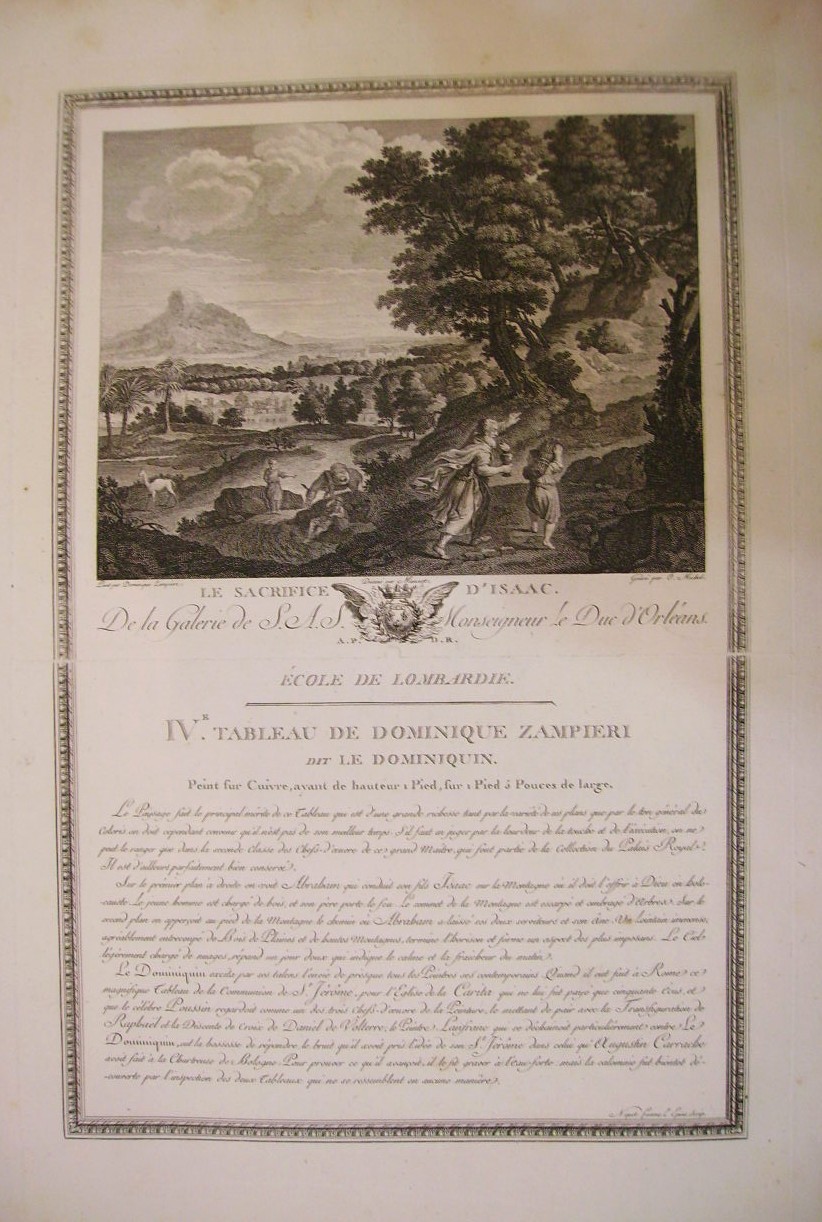 Peint par Dominique Zampieri.
Gravé par J. B. Michel.
LE SACRIFICE D'ISAAC.
De la Galerie de S. A. S. Monseigneur le Duc d'Orléans.
A. P. D. R.
ÉCOLE DE LOMBARDIE.
IV.E TABLEAU DE DOMINIQUE ZAMPIERI
DIT LE DOMINIQUIN.
Peint sur Cuivre, ayant de hauteur 1 Pied, sur 1 Pied 5 Pouces de large.
Le Paysage fait le principal mérite de ce Tableau qui est d'une grande richesse tant par la varieté de ses plans que par le ton général du
Coloris on doit cependant convenir qu'il n'est pas de son meilleur temps. S'il faut en juger par la lourdeur de la touche et de l'éxécution, on ne
peut le ranger que dans la seconde Classe des Chefs-d'œuvre de ce grand Maître, qui font partie de la Collection du Palais Royal.
Il est d'ailleurs parfaitement bien conservé.
Sur le premier plan à droite on voit Abraham qui conduit son fils Isaac sur la Montagne où il doit l'offrir à Dieu en holo-
causte. Le jeune homme est chargé de bois, et son père porte le feu. Le sommet de la Montagne est escarpé et ombragé d'Arbres. Sur le
second plan on apperçoit au pied de la Montagne le chemin où Abraham a laissé ses deux serviteurs et son Ane. Un lointain immense,
agréablement entrecoupé de Bois de Plaines et de hautes Montagnes, termine l'horison et forme un aspect des plus imposans. Le Ciel
légèrement chargé de nuages, répand un jour doux qui indique le calme et la fraicheur du matin.
Le Dominiquin excita par ses talens l'envie de presque tous les Peintres ses contemporains. Quand il eut fait à Rome ce
magnifique Tableau de la Communion de St. Jérôme, pour l'Eglise de la Carita qui ne lui fut payé que cinquante Ecus, et
que le célèbre Poussin regardoit comme un des trois Chefs-d'œuvre de la Peinture, le mettant de pair avec la Transfiguration de
Raphael et la Discente de Croix de Daniel de Volterre, le Peintre Lanfranc qui se déchainoit particulièrement contre Le
Dominiquin, eut la bassesse de répandre le bruit qu'il avoit pris l'idée de son St. Jérôme dans celui qu'Augustin Carrache
avoit fait à la Chartreuse de Bologne. Pour prouver ce qu'il avançoit, il le fit graver à l'eau-forte, mais la calomnie fut bientôt dé-
couverte par l'inspection des deux Tableaux qui ne se ressemblent en aucune manière.